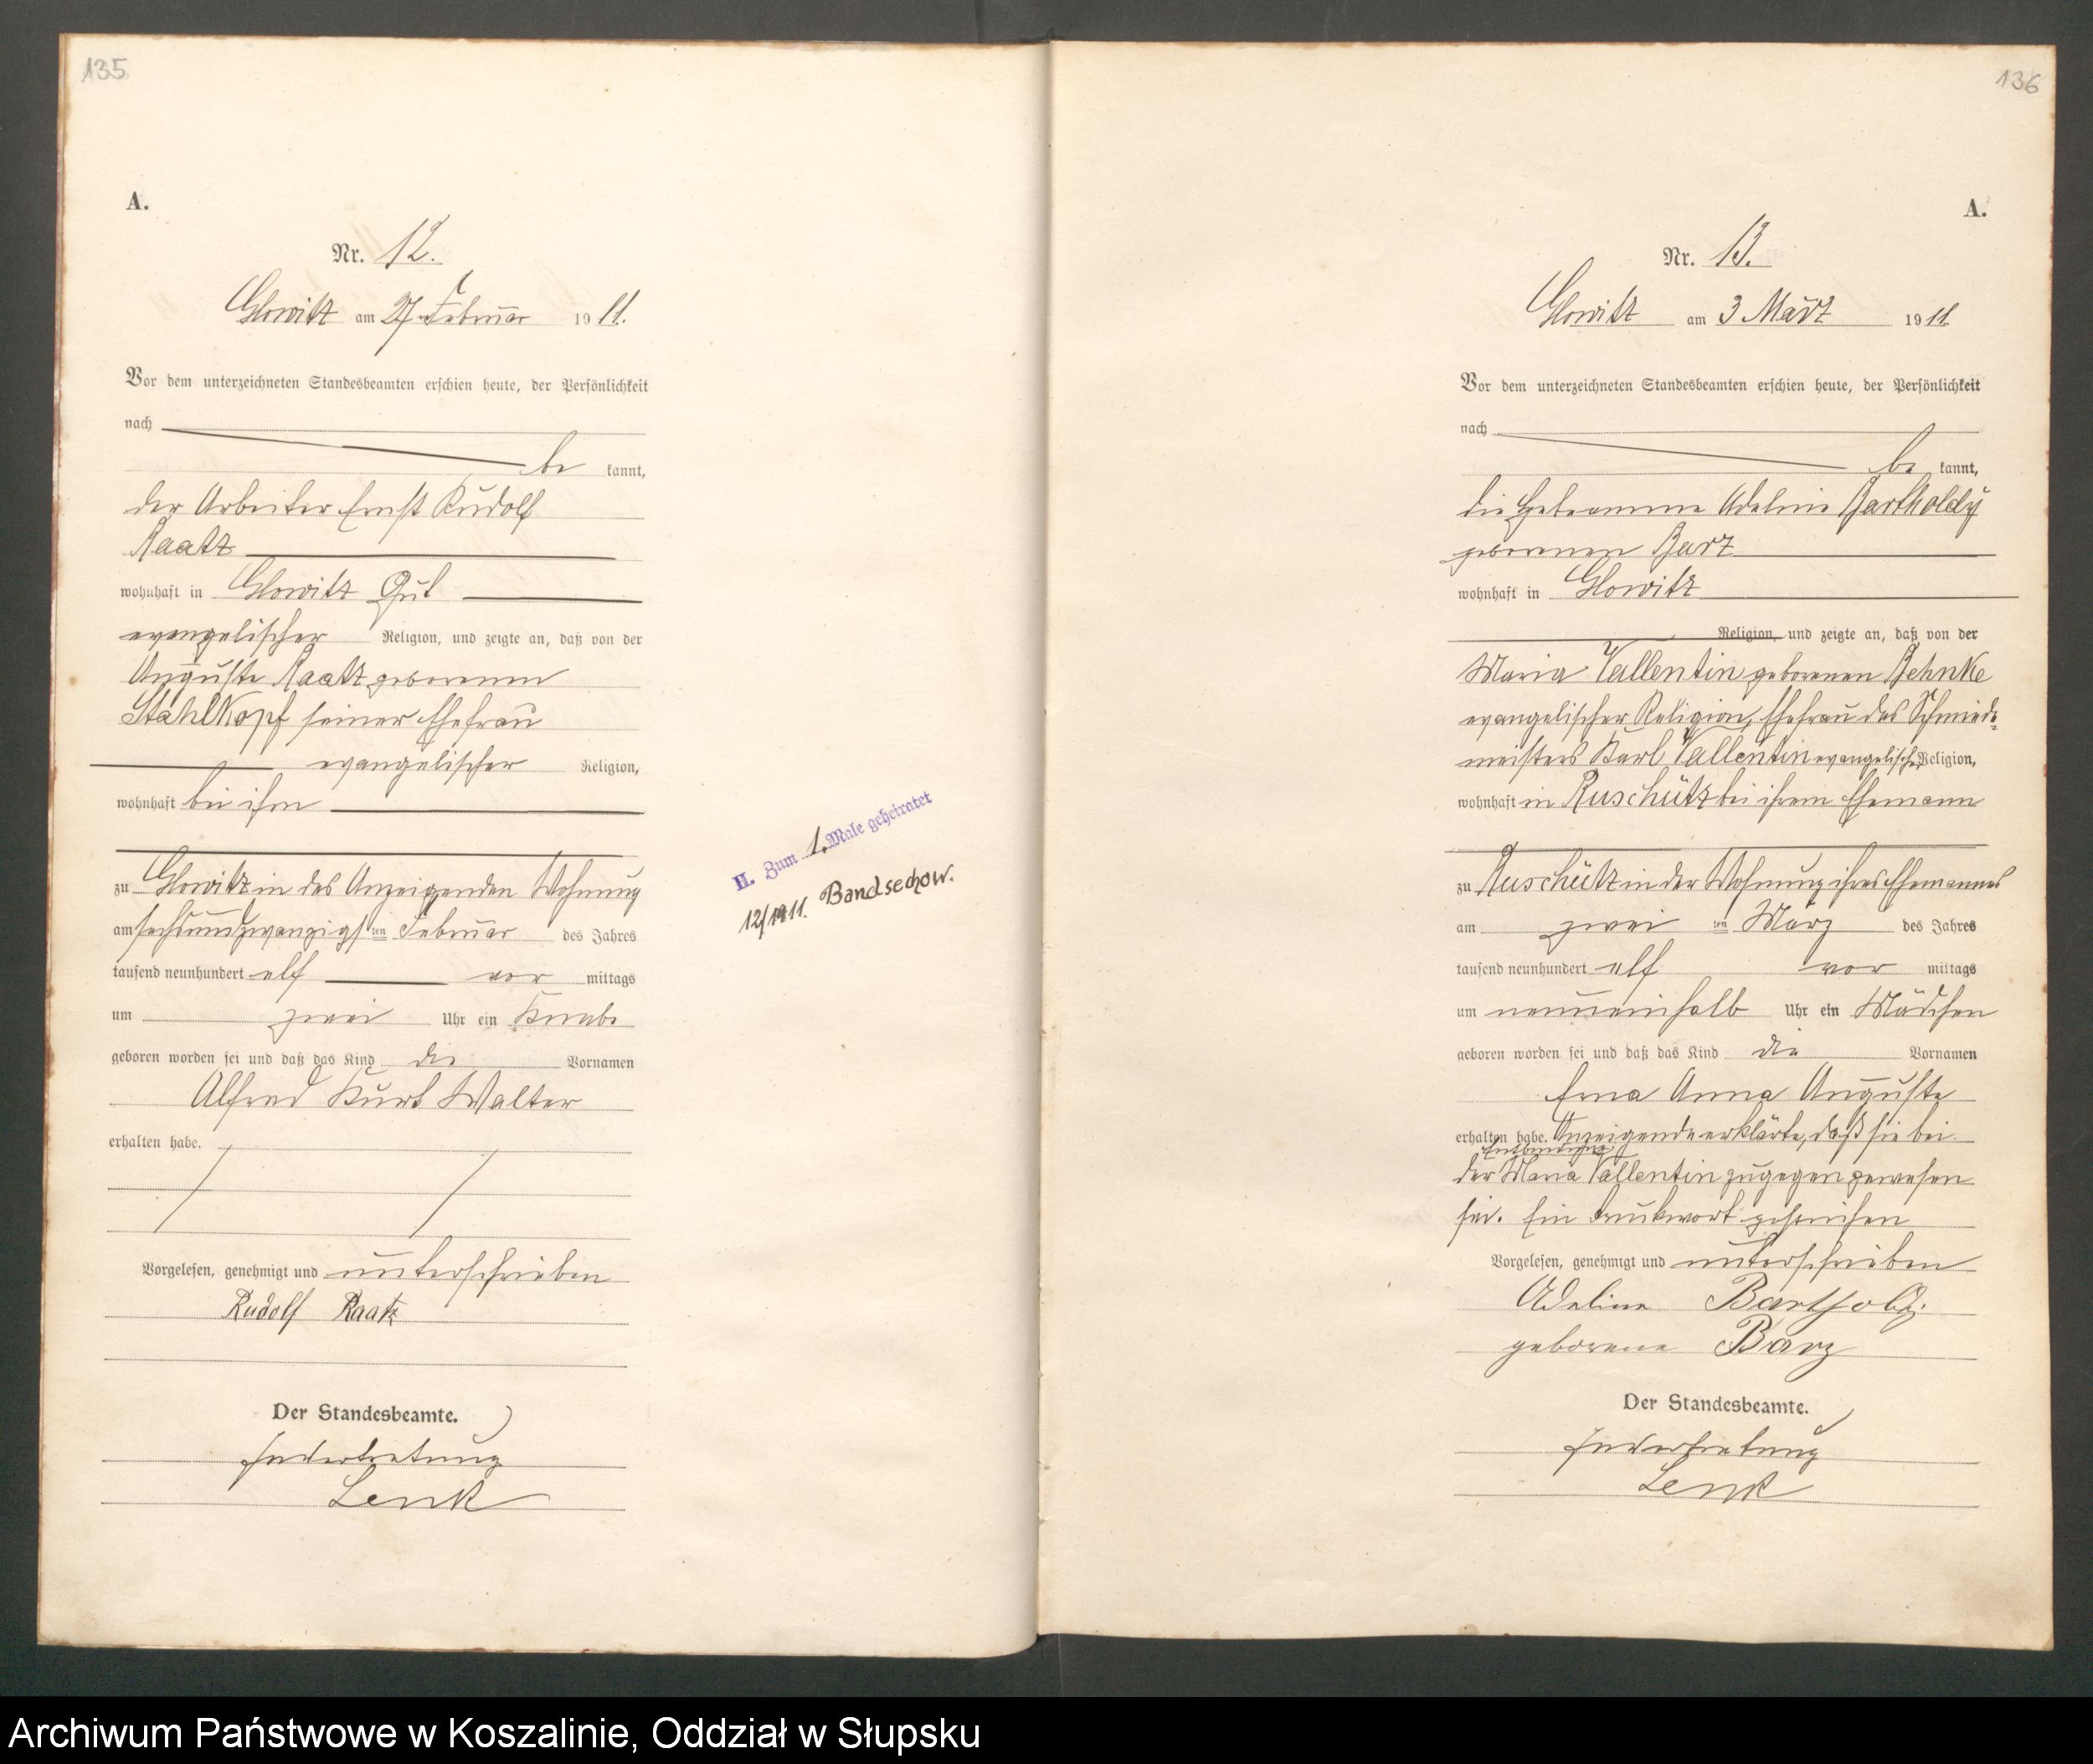 135
A.
Nr. 12.
Glowitz am 27. Februar 1911.
Vor dem unterzeichneten Standesbeamten erschien heute, der Persönlichkeit
nach
be kannt,
der Arbeiter Ernst Rudolf
Raatz
wohnhaft in Glowitz Gut
evangelischer Religion, und zeigte an, daß von der
Auguste Raatz geborenen
Stahlkopf seiner Ehefrau
evangelischer Religion,
wohnhaft bei ihm
zu Glowitz in des Anzeigenden Wohnung
am sechsundzwanzigsten Februar des Jahres
tausend neunhundert elf vor mittags
um zwei Uhr ein Knabe
geboren worden sei und daß das Kind die Vornamen
Alfred Kurt Walter
erhalten habe.
Vorgelesen, genehmigt und unterschrieben
Rudolf Raatz
Der Standesbeamte.
In Vertretung
Lenk
II. Zum 1. Male geheiratet
12/1911. Bandsechow.
136
A.
Nr. 13.
Glowitz am 3 März 1911
Vor dem unterzeichneten Standesbeamten erschien heute, der Persönlichkeit
nach
be kannt,
die Hebamme Adeline Bartholdy
geborenen Barz
wohnhaft in Glowitz
Religion, und zeigte an, daß von der
Maria Vallentin geborenen Behnke
evangelischer Religion, Ehefrau des Schmiede-
meisters Karl Vallentin evangelischer Religion,
wohnhaft in Ruschütz bei ihrem Ehemann
zu Ruschütz in der Wohnung ihres Ehemannes
am zwei ten März des Jahres
tausend neunhundert elf vor mittags
um neuneinhalb Uhr ein Mädchen
geboren worden sei und daß das Kind die Vornamen
Erna Anna Auguste
erhalten habe. Anzeigende erklärte, daß sie bei
Entbindung
der Maria Vallentin zugegen gewesen
sei. Ein Druckwort gestrichen
Vorgelesen, genehmigt und unterschrieben
Adeline Bartholdy.
geborene Barz
Der Standesbeamte.
In Vertretung
Lenk
Archiwum Państwowe w Koszalinie, Oddział w Słupsku